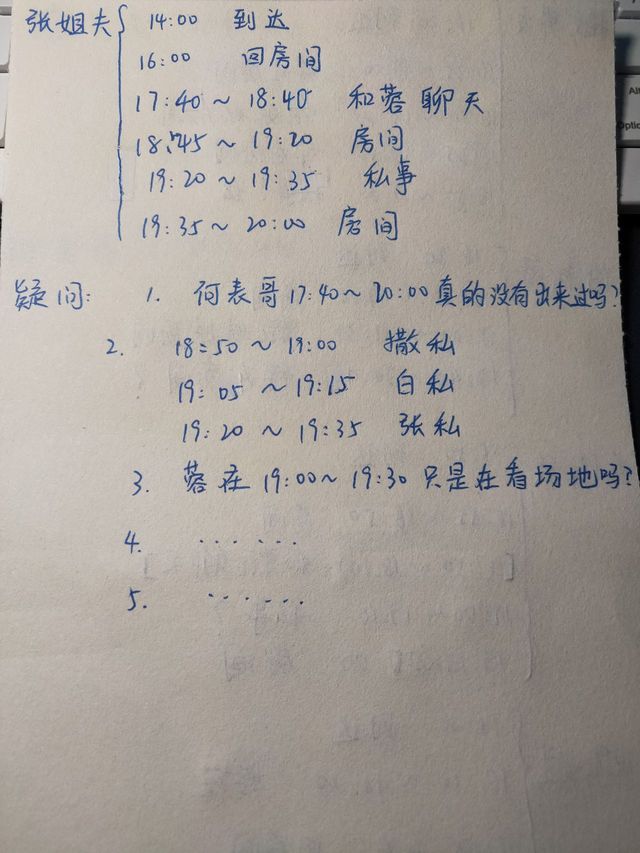 张姐夫 14:00 到达
16:00 回房间
17:40~18:40 和蓉聊天
18:45~19:20 房间
19:20~19:35 私事
19:35~20:00 房间
疑问: 1. 何表哥17:40~20:00真的没有出来过吗?
2. 18:50~19:00 撒私
19:05~19:15 白私
19:20~19:35 张私
3. 蓉在19:00~19:30只是在看场地吗?
4. ......
5. ......